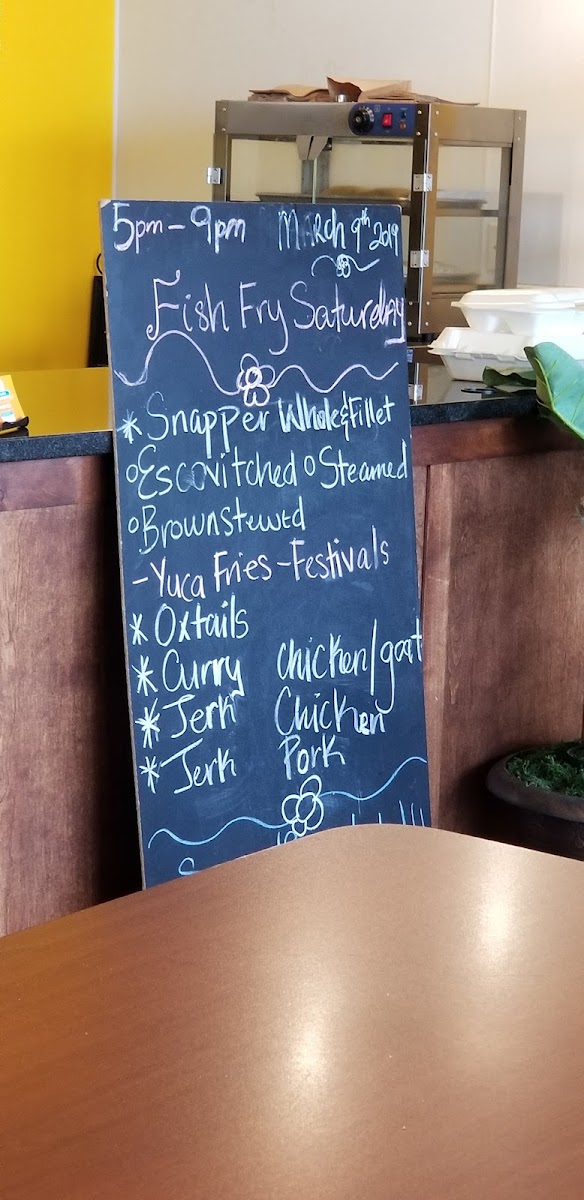 5pm - 9pm March 9th 2019
Fish Fry Saturday
* Snapper Whole & Fillet
o Escovitched o Steamed
o Brownstewed
- Yuca Fries - Festivals
* Oxtails
* Curry chicken/goat
* Jerk Chicken
* Jerk Pork